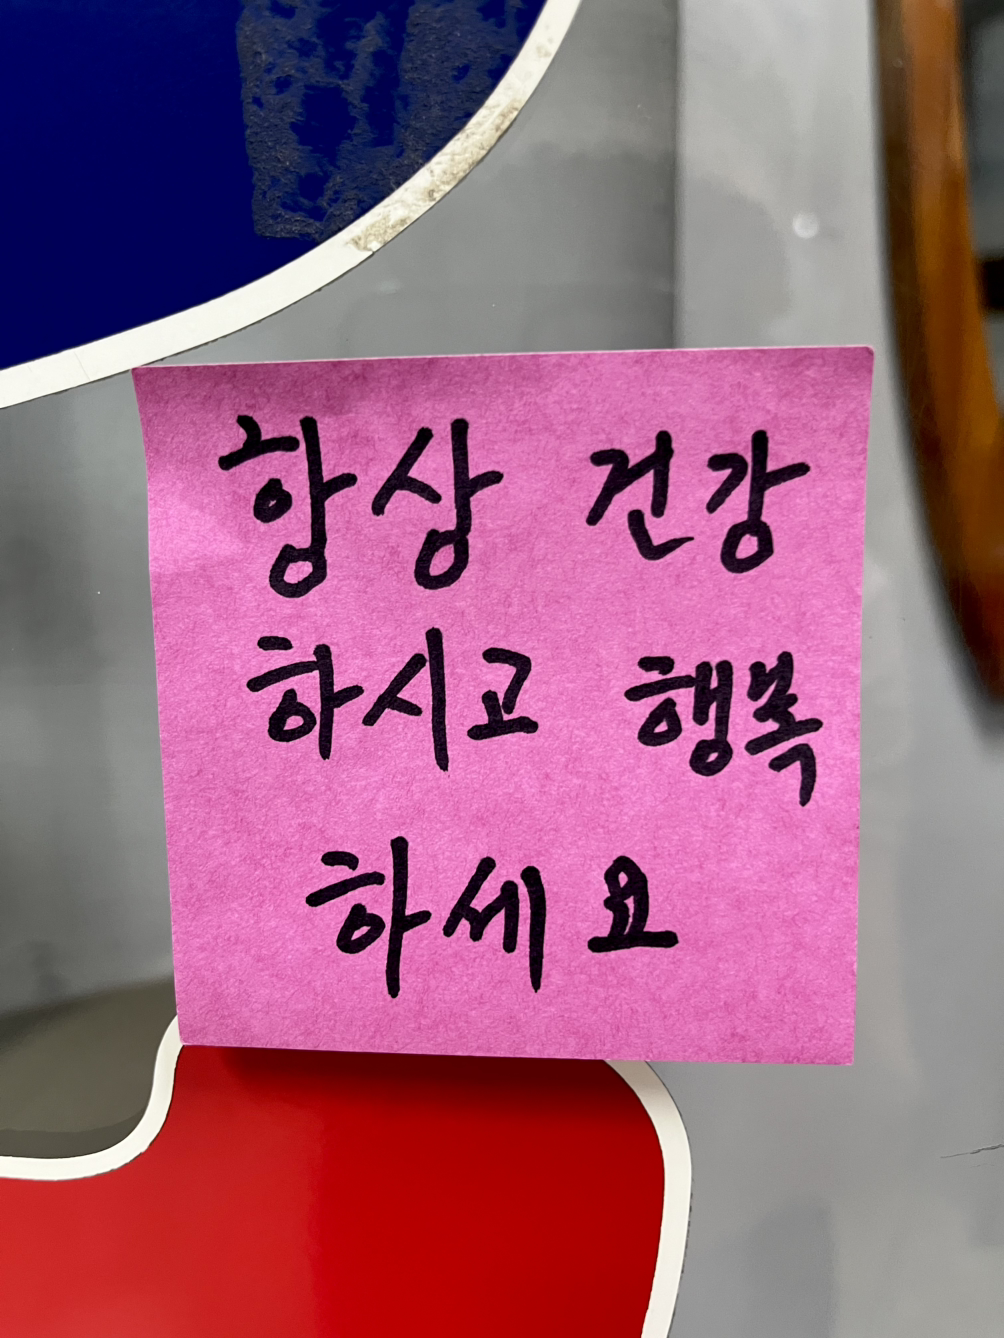 항상 건강
하시고 행복
하세요